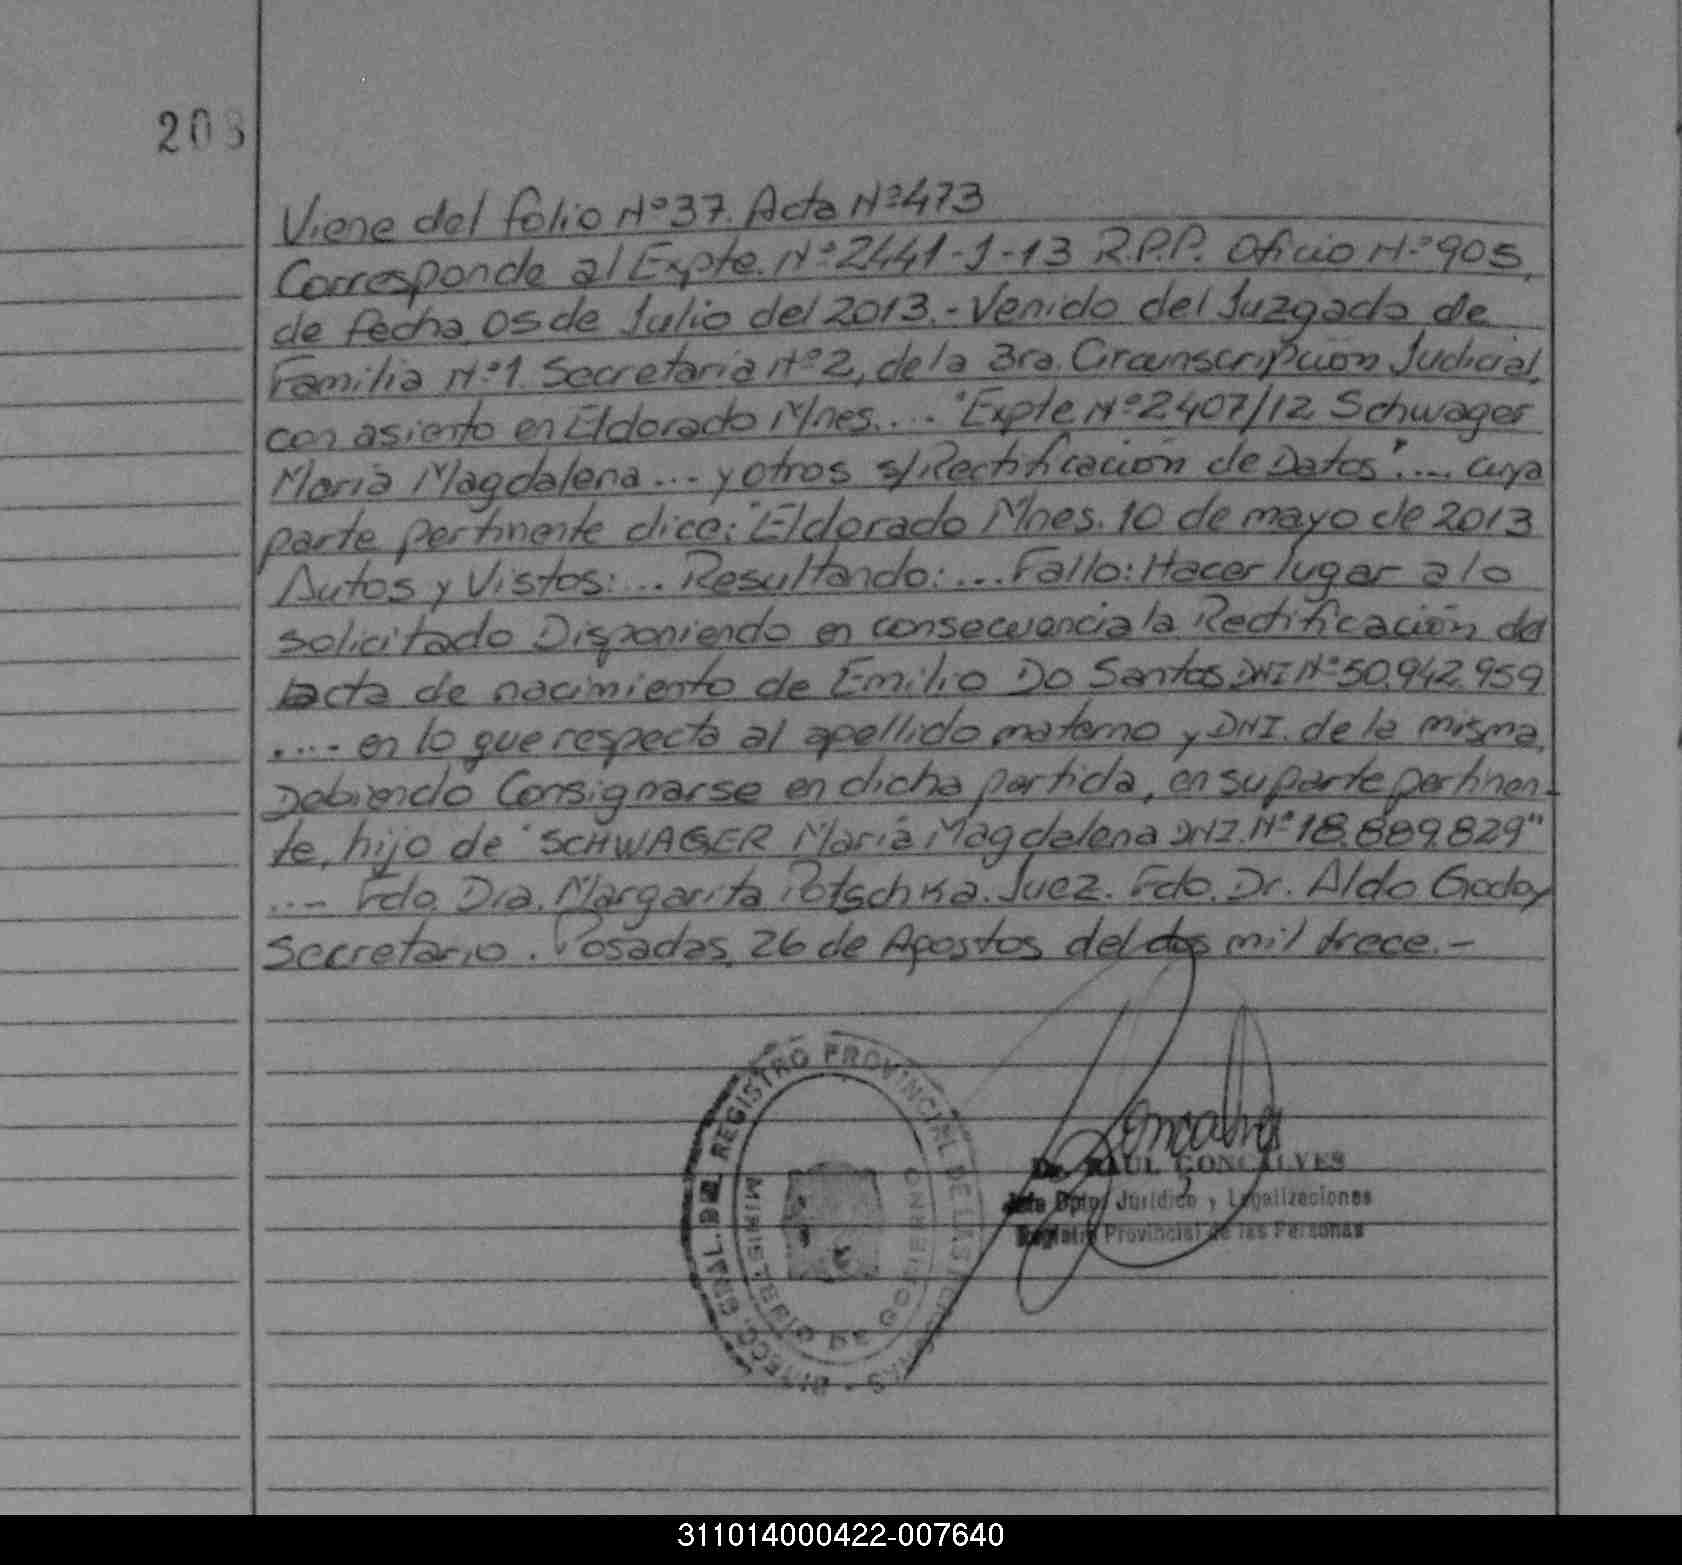 203
Viene del folio Nº37. Acta Nº473
Corresponde al Expte. Nº2441-J-13 R.P.P. Oficio Nº905,
de fecha 05 de Julio del 2013.- Venido del Juzgado de
Familia Nº1. Secretaria Nº2, de la 3ra. Circunscripción Judicial,
con asiento en Eldorado Mnes.... "Expte Nº2407/12 Schwager
María Magdalena... y otros s/Rectificación de Datos".... cuya
parte pertinente dice: "Eldorado Mnes. 10 de mayo de 2013
Autos y Vistos:... Resultando:... Fallo: Hacer lugar a lo
solicitado Disponiendo en consecuencia la Rectificación del
acta de nacimiento de Emilio Do Santos DNI Nº50.942.959
.... en lo que respecta al apellido materno y DNI. de la misma,
Debiendo Consignarse en dicha partida, en su parte pertinen-
te, hijo de "SCHWAGER María Magdalena DNI. Nº18.889.829"
...- Fdo. Dra. Margarita Potschka. Juez. Fdo. Dr. Aldo Godoy
Secretario. Posadas, 26 de Agostos del dos mil trece.-
DIRECC. GRAL. DEL REGISTRO PROVINCIAL DE LAS PERSONAS -
MINISTERIO DE GOBIERNO
Goncalves
Dr. RAUL GONCALVES
Jefe Dpto. Jurídico y Legalizaciones
Registro Provincial de las Personas
311014000422-007640